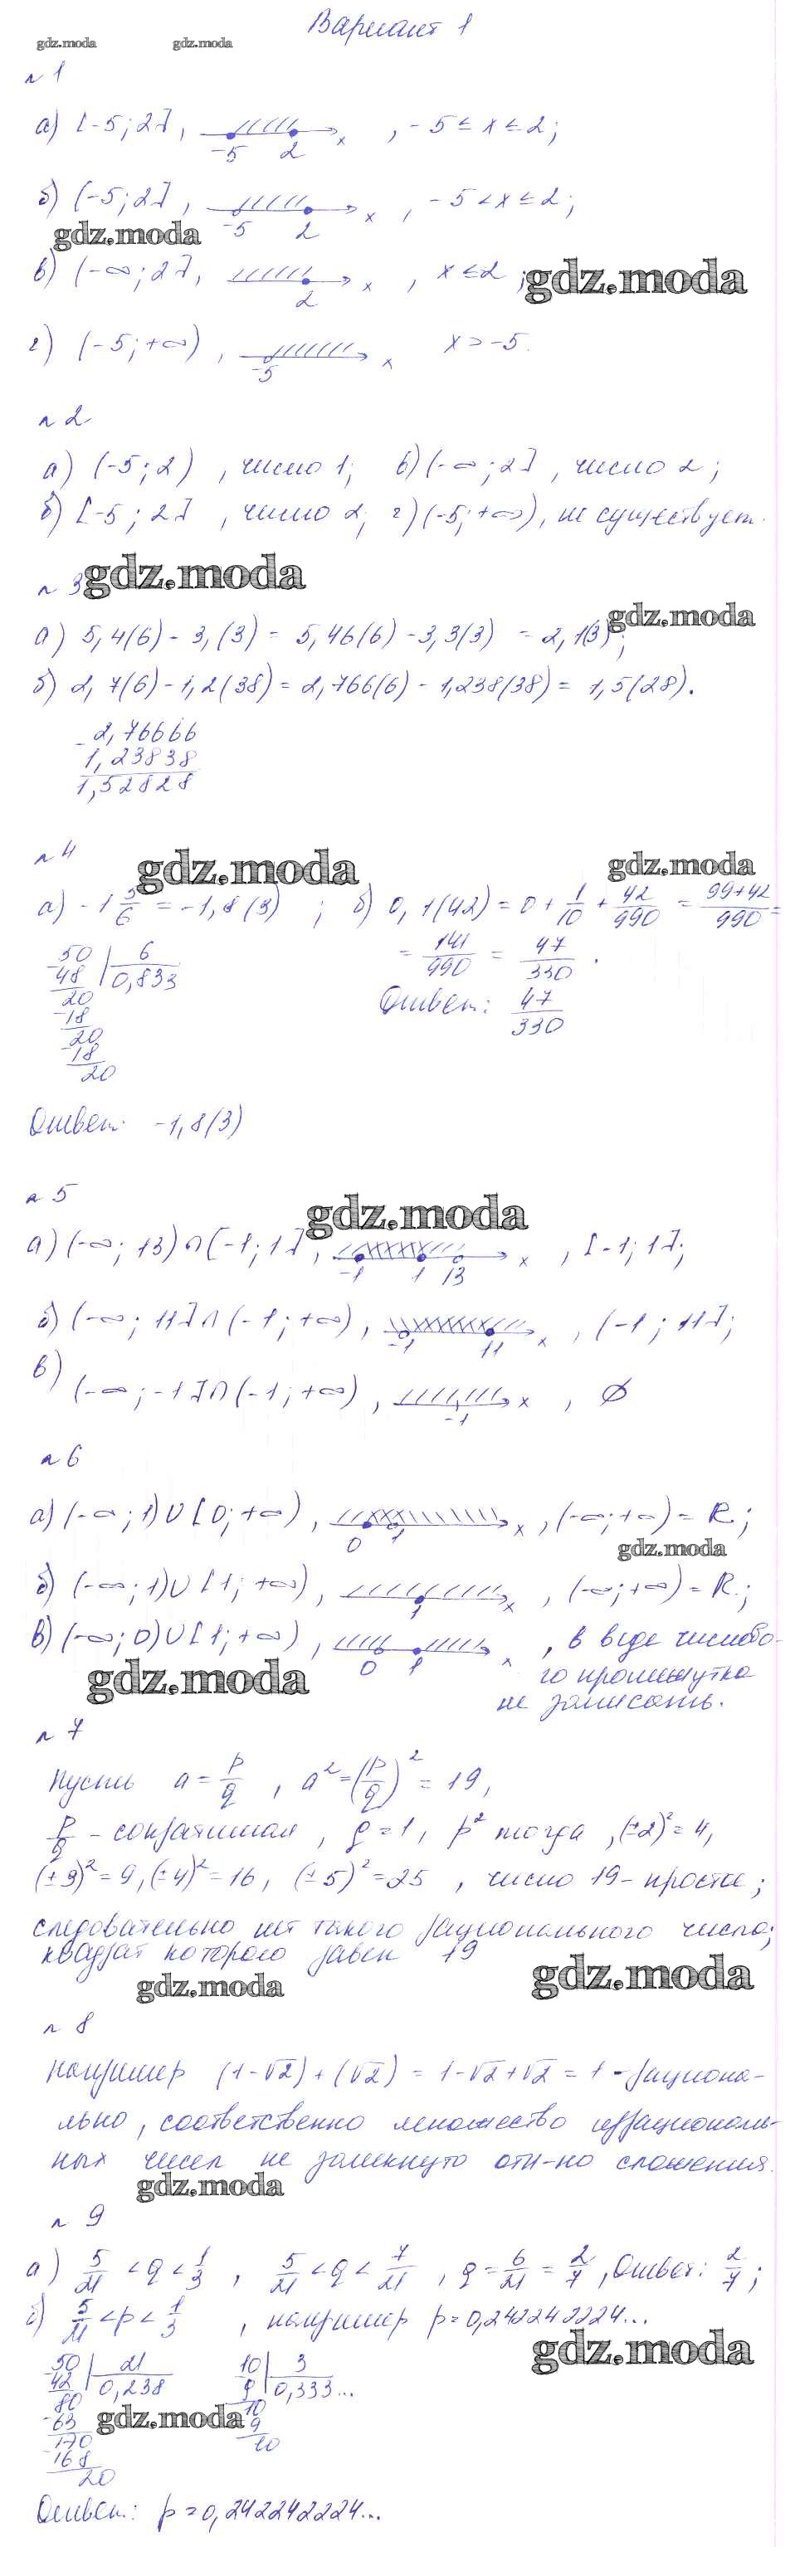 Вариант 1
gdz.moda gdz.moda
№1
а) [-5; 2], -5 2 x , -5 ≤ x ≤ 2;
б) (-5; 2], -5 2 x , -5 < x ≤ 2;
gdz.moda
в) (-∞; 2], 2 x , x ≤ 2 ; gdz.moda
г) (-5; +∞) , -5 x x > -5.
№2
а) (-5; 2) , число 1; в) (-∞; 2] , число 2;
б) [-5; 2] , число 2; г) (-5; +∞), не существует.
№3 gdz.moda
gdz.moda
а) 5,4(6) - 3,(3) = 5,46(6) - 3,3(3) = 2,1(3);
б) 2,7(6) - 1,2(38) = 2,766(6) - 1,238(38) = 1,5(28).
- 2,76666
1,23838
1,52828
№4 gdz.moda gdz.moda
а) -1 5/6 = -1,8(3) ; б) 0,1(42) = 0 + 1/10 + 42/990 = 99+42/990 =
-50 | 6
48 | 0,833
= 141/990 = 47/330 .
20
-18
Ответ: 47/330
20
-18
20
Ответ: -1,8(3)
№5
gdz.moda
а) (-∞; 13) ∩ [-1; 1], -1 1 13 x , [-1; 1];
б) (-∞; 11] ∩ (-1; +∞), -1 11 x , (-1; 11];
в) (-∞; -1] ∩ (-1; +∞), -1 x , ∅
№6
а) (-∞; 1) ∪ [0; +∞), 0 1 x , (-∞; +∞) = R;
gdz.moda
б) (-∞; 1) ∪ [1; +∞), 1 x , (-∞; +∞) = R;
в) (-∞; 0) ∪ [1; +∞), 0 1 x , в виде числово-
gdz.moda го промежутка
не записать.
№7
Пусть a = p/q , a² = (p/q)² = 19,
p/q - сократимая, q = 1, p² тогда, (±2)² = 4,
(±3)² = 9, (±4)² = 16, (±5)² = 25 , число 19 - простое;
следовательно нет такого рационального числа;
квадрат которого равен 19
gdz.moda gdz.moda
№8
например (1-√2) + (√2) = 1-√2+√2 = 1 - рациона-
льно, соответственно множество иррациональ-
ных чисел не замкнуто отн-но сложения.
gdz.moda
№9
а) 5/21 < q < 1/3 , 5/21 < q < 7/21 , q = 6/21 = 2/7 , Ответ: 2/7;
б) 5/21 < p < 1/3 , например p = 0,242242224...
gdz.moda
-50 | 21 10 | 3
42 | 0,238 9 | 0,333...
80 10
-63 gdz.moda 9
170 10
-168
20
Ответ: p = 0,242242224...